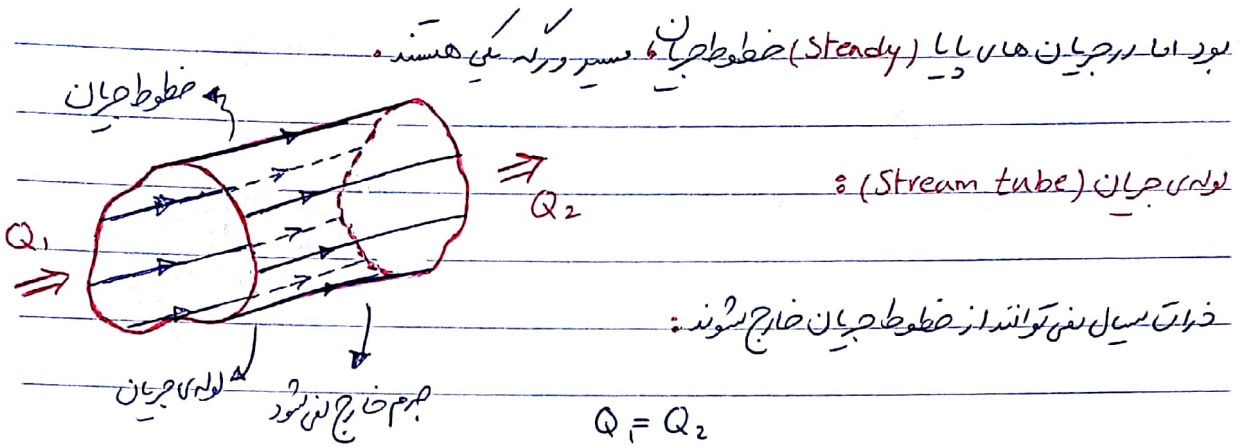 بود اما در جریان های پایا (Steady) خطوط جریان، مسیر و رگه یکی هستند.
خطوط جریان
لوله‌ی جریان (Stream tube) :
Q₁
Q₂
ذرات سیال نمی‌توانند از خطوط جریان خارج شوند:
لوله‌ی جریان
جرم خارج نمی‌شود
Q₁ = Q₂